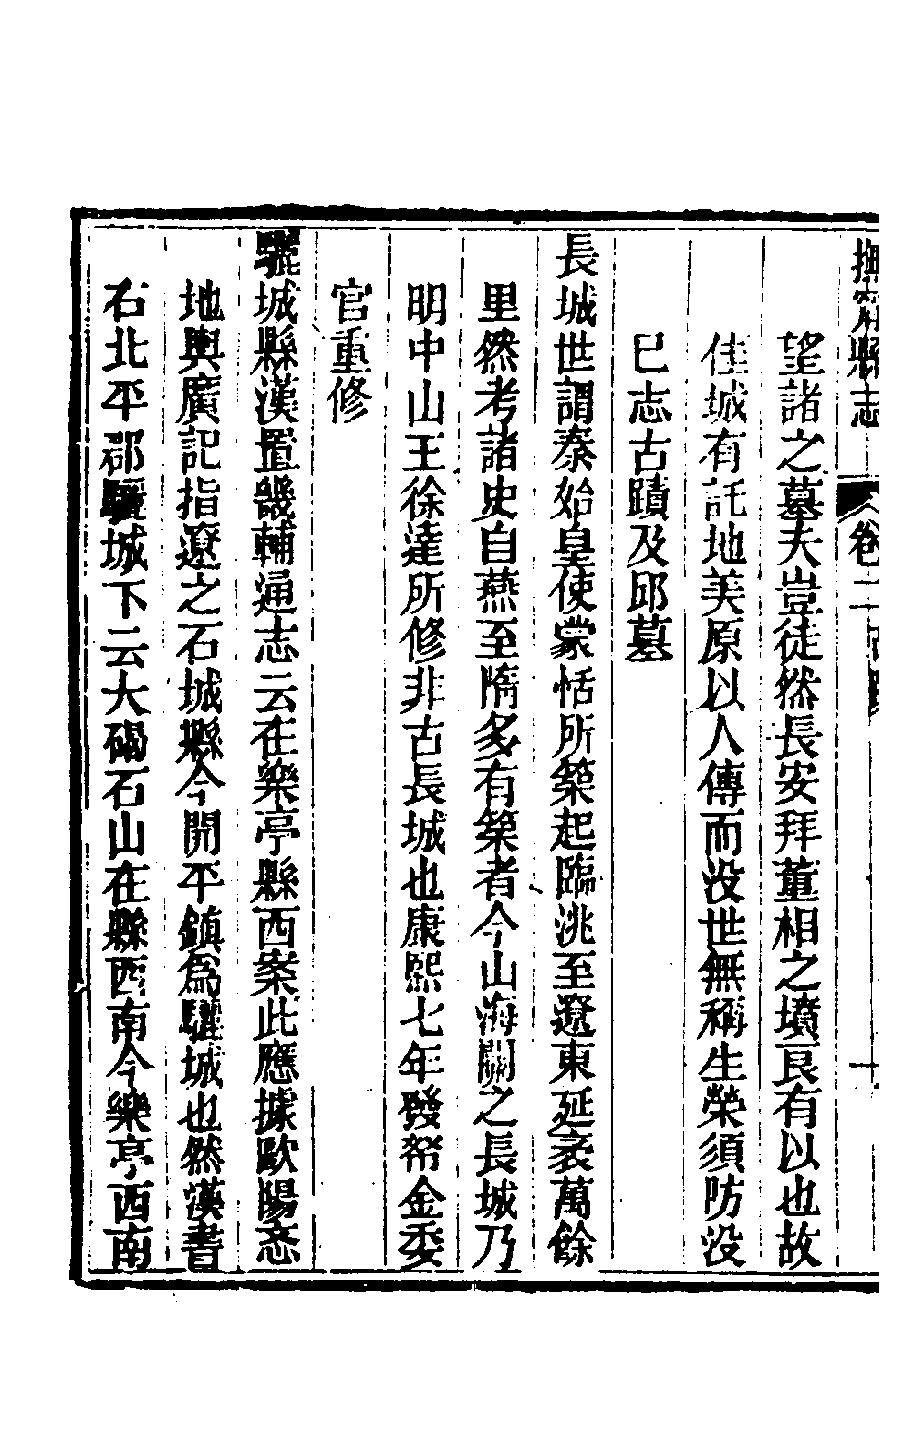 撫寧縣志 卷二 古蹟 十
望諸之墓夫豈徒然長安拜董相之墳艮有以也故
佳城有託地美原以人傳而没世無稱生榮須防没
巳志古蹟及邱墓
長城世謂秦始皇使蒙恬所築起臨洮至遼東延袤萬餘
里然考諸史自燕至隋多有築者今山海關之長城乃
明中山王徐達所修非古長城也康熙七年發帑金委
官重修
驪城縣漢置畿輔通志云在樂亭縣西案此應據歐陽忞
地輿廣記指遼之石城縣今開平鎮爲驪城也然漢書
右北平郡驪城下云大碣石山在縣西南今樂亭西南